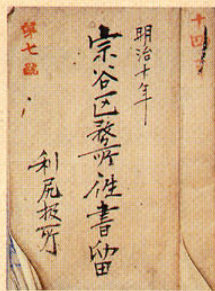 十四
明治十年
宗谷区務所徃書留
利尻扱所
第七號